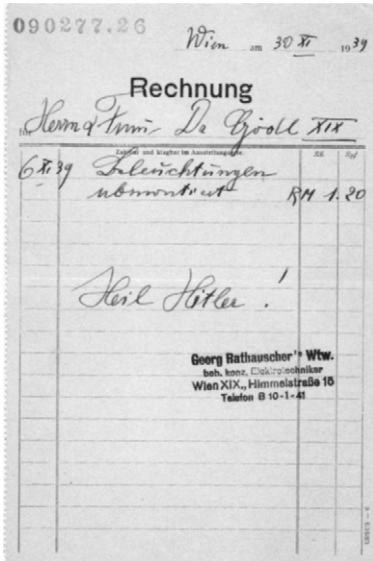 090277.26
Wien am 30 XI 1939
Rechnung
für Herrn & Frau Dr Gödl XIX
Zahlbar und klagbar im Ausstellungsorte.
6 XI 39 Beleuchtungen
abmontiert RM 1.20
Heil Hitler!
Georg Rathauscher's Wtw.
beh. konz. Elektrotechniker
Wien XIX., Himmelstraße 15
Telefon B 10-1-41